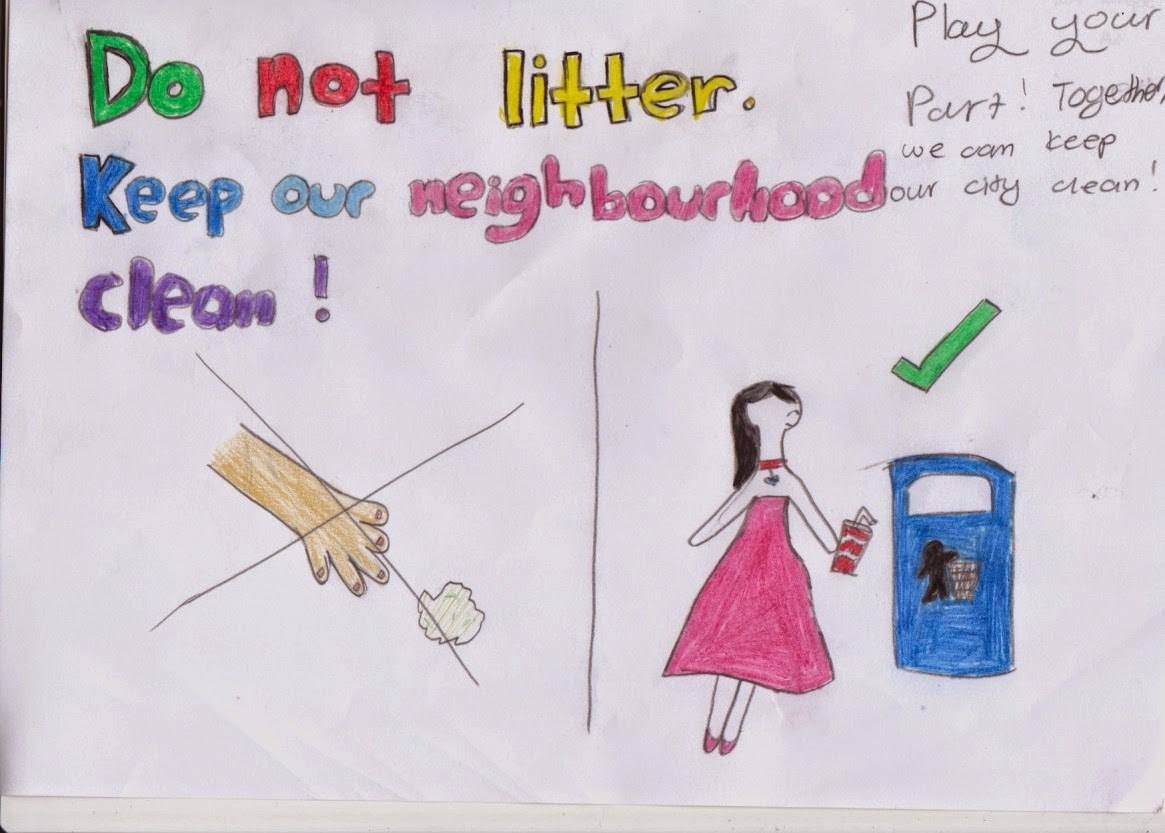 Do not litter.
Keep our neighbourhood
clean!
Play your
Part! Together,
we can keep
our city clean!